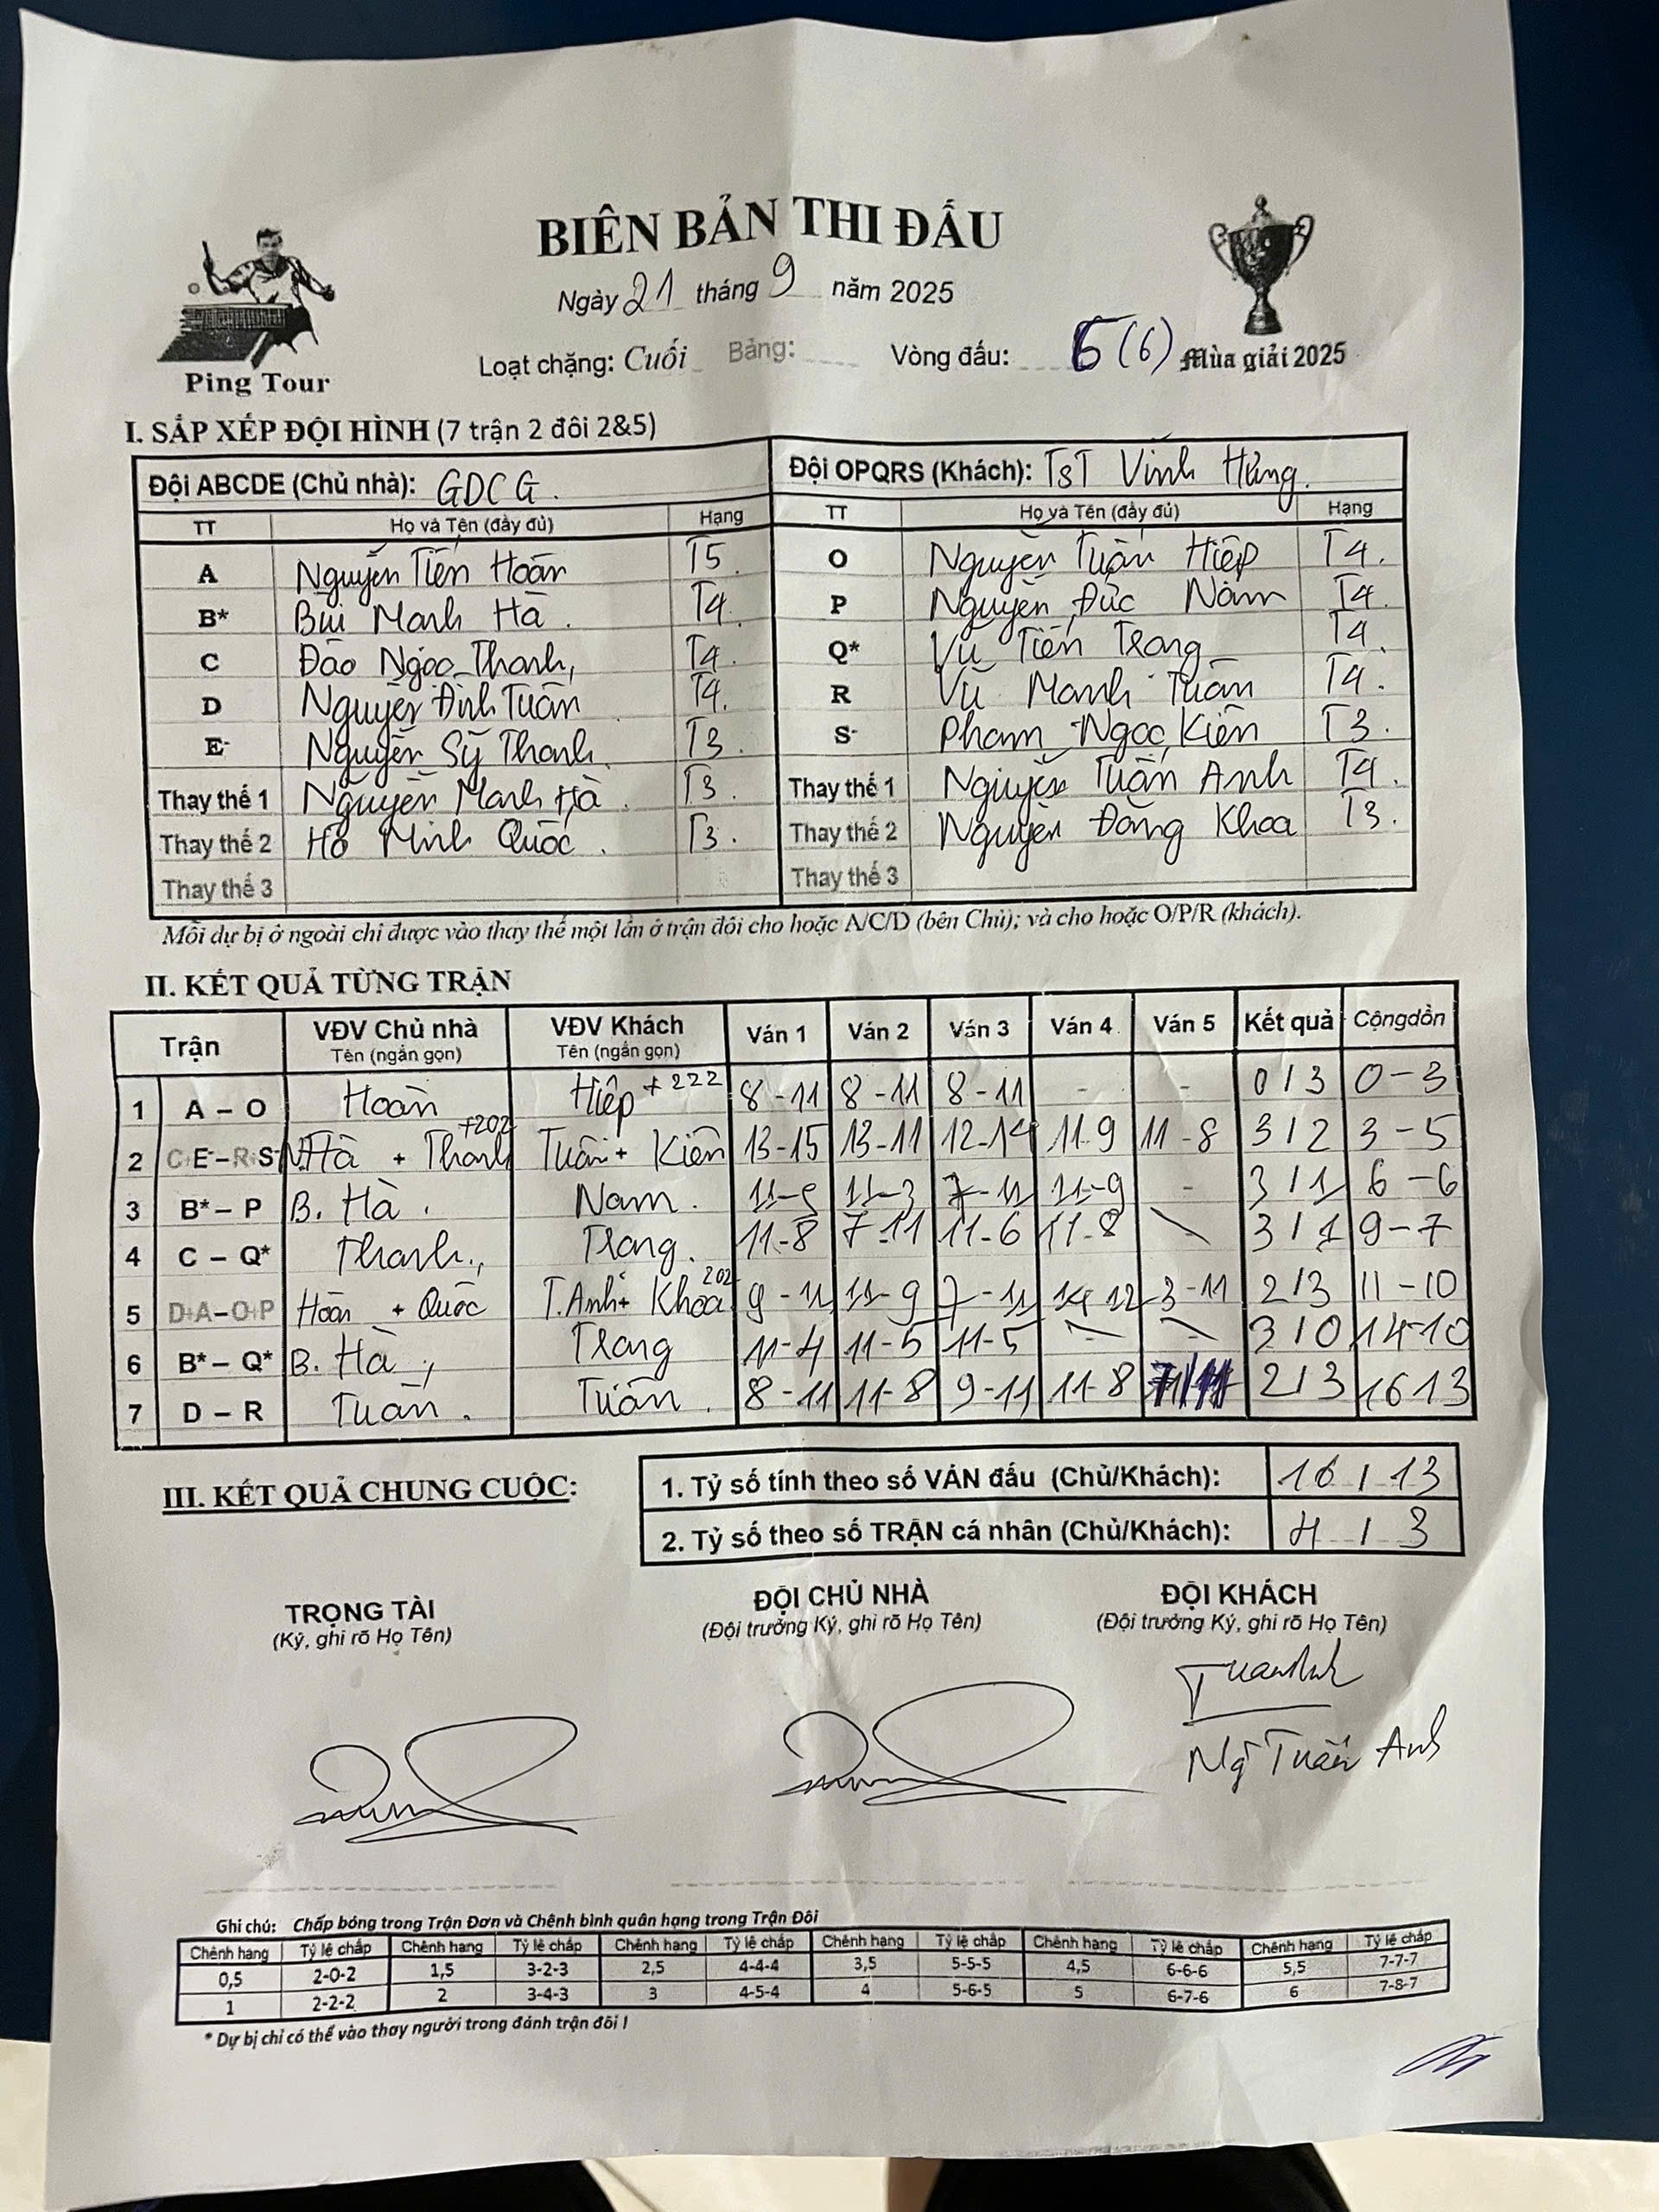 BIÊN BẢN THI ĐẤU
Ngày 21 tháng 9 năm 2025
Ping Tour
Loạt chặng: Cuối Bảng: Vòng đấu: 5 (6) Mùa giải 2025
I. SẮP XẾP ĐỘI HÌNH (7 trận 2 đôi 2&5)
Đội ABCDE (Chủ nhà): GDCG. Đội OPQRS (Khách): TST Vĩnh Hưng.
TT Họ và Tên (đầy đủ) Hạng TT Họ và Tên (đầy đủ) Hạng
A Nguyễn Tiến Hoàn T5 O Nguyễn Tuấn Hiệp T4.
B* Bùi Mạnh Hà. T4. P Nguyễn Đức Nam T4.
C Đào Ngọc Thanh, T4. Q* Vũ Tiến Trang T4.
D Nguyễn Đình Tuấn T4. R Vũ Mạnh Tuấn T4.
E- Nguyễn Sỹ Thanh. T3. S- Phạm Ngọc Kiên T3.
Thay thế 1 Nguyễn Mạnh Hà. T3. Thay thế 1 Nguyễn Tuấn Anh T4.
Thay thế 2 Hồ Minh Quốc. T3. Thay thế 2 Nguyễn Đăng Khoa T3.
Thay thế 3 Thay thế 3
Mỗi dự bị ở ngoài chỉ được vào thay thế một lần ở trận đôi cho hoặc A/C/D (bên Chủ); và cho hoặc O/P/R (khách).
II. KẾT QUẢ TỪNG TRẬN
Trận VĐV Chủ nhà Tên (ngắn gọn) VĐV Khách Tên (ngắn gọn) Ván 1 Ván 2 Ván 3 Ván 4 Ván 5 Kết quả Cộng dồn
1 A – O Hoàn Hiệp +222 8-11 8-11 8-11 - - 0/3 0-3
2 C+E-–R+S- N.Hà + Thanh +202 Tuấn + Kiên 13-15 13-11 12-14 11-9 11-8 3/2 3-5
3 B* – P B. Hà. Nam. 11-5 11-3 7-11 11-9 - 3/1 6-6
4 C – Q* Thanh., Trang. 11-8 7-11 11-6 11-8 3/1 9-7
5 D+A–O+P Hoàn + Quốc T.Anh+ Khoa 202 9-11 11-9 7-11 14-12 3-11 2/3 11-10
6 B* – Q* B. Hà, Trang 11-4 11-5 11-5 - - 3/0 14-10
7 D – R Tuấn. Tuấn. 8-11 11-8 9-11 11-8 2/3 16 13
III. KẾT QUẢ CHUNG CUỘC:
1. Tỷ số tính theo số VÁN đấu (Chủ/Khách): 16 / 13
2. Tỷ số theo số TRẬN cá nhân (Chủ/Khách): 4 / 3
TRỌNG TÀI ĐỘI CHỦ NHÀ ĐỘI KHÁCH
(Ký, ghi rõ Họ Tên) (Đội trưởng Ký, ghi rõ Họ Tên) (Đội trưởng Ký, ghi rõ Họ Tên)
TuanAnh
Ng Tuấn Anh
Ghi chú: Chấp bóng trong Trận Đơn và Chênh bình quân hạng trong Trận Đôi
Chênh hạng Tỷ lệ chấp Chênh hạng Tỷ lệ chấp Chênh hạng Tỷ lệ chấp Chênh hạng Tỷ lệ chấp Chênh hạng Tỷ lệ chấp Chênh hạng Tỷ lệ chấp
0,5 2-0-2 1,5 3-2-3 2,5 4-4-4 3,5 5-5-5 4,5 6-6-6 5,5 7-7-7
1 2-2-2 2 3-4-3 3 4-5-4 4 5-6-5 5 6-7-6 6 7-8-7
* Dự bị chỉ có thể vào thay người trong đánh trận đôi !